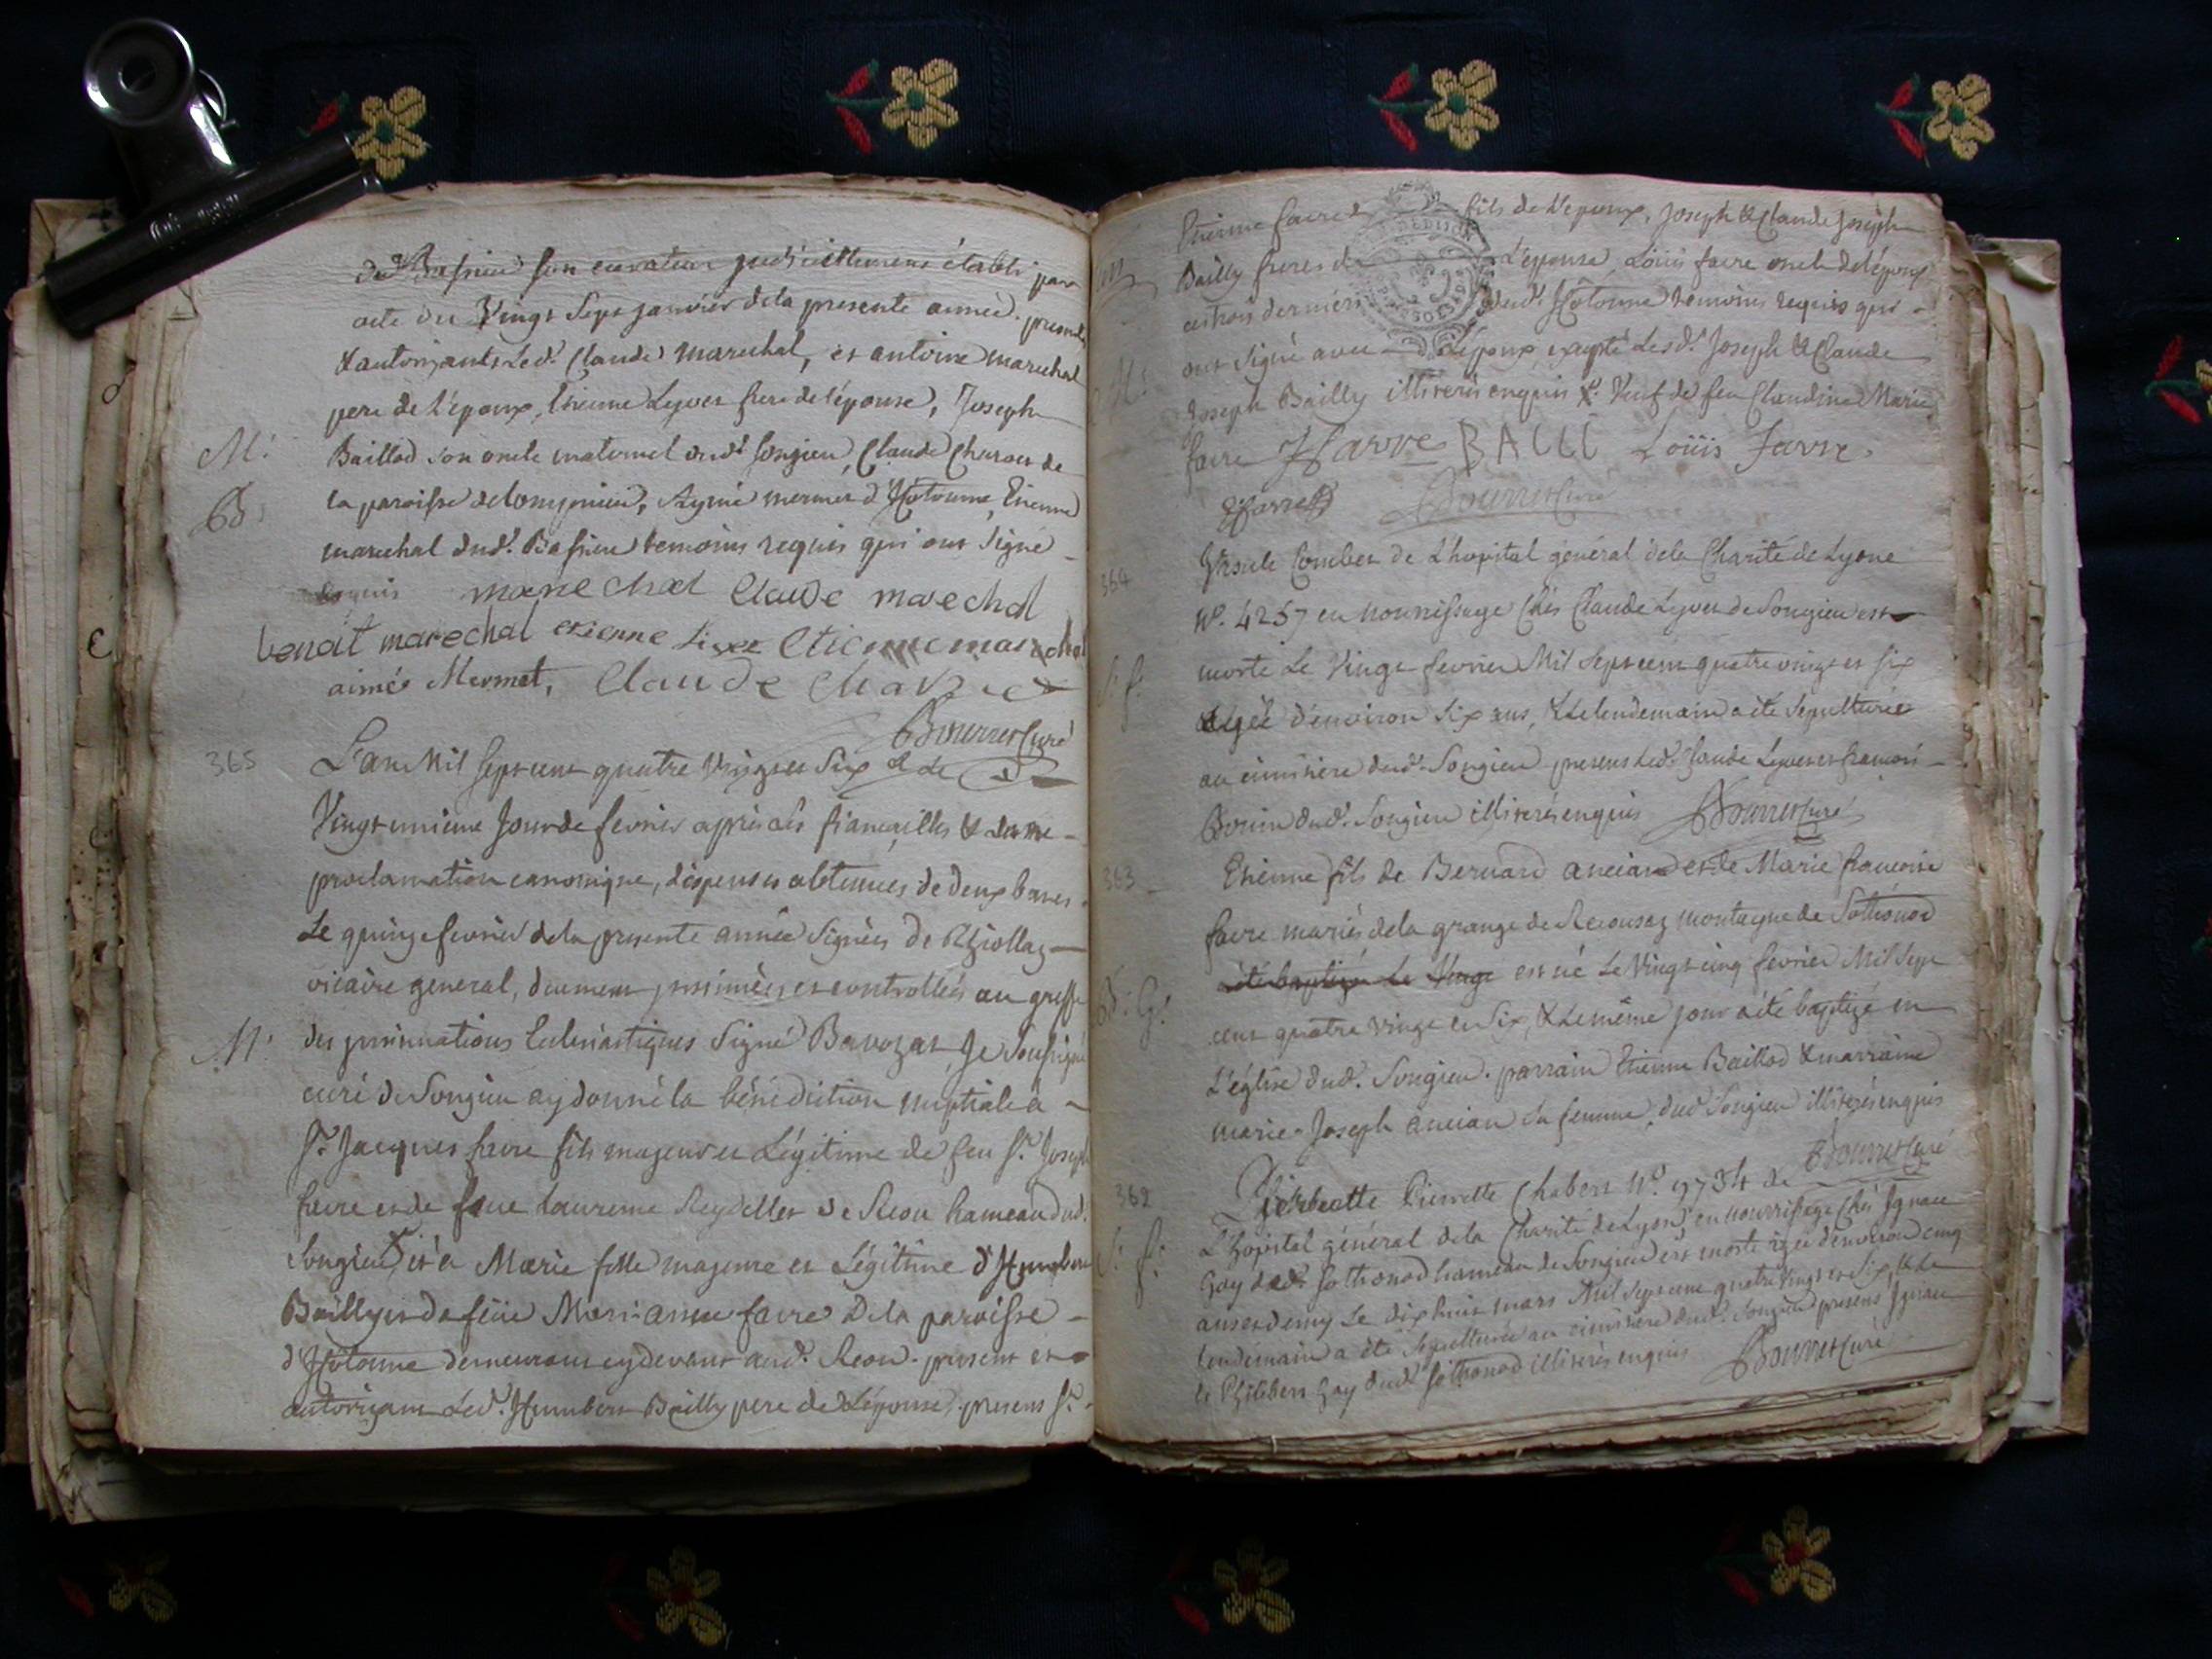 dud. Bassieu son curateur judiciellement établi par
acte du Vingt Sept janvier dela presente année. presents
& autorizants Led. Claude marechal, et antoine marechal
pere de l'epoux, Etienne Lyvet frere de l'épouse, Joseph
M:
Baillod son oncle maternel dudt Songieu, Claude Charvet de
la paroisse de lompnieu, Aymé mermet d'Hotonne, Etienne
B:
marechal dud. Bassieu temoins requis qui ont signé
marechal Claude marechal
benoit marechal etienne Livet Etienne marechal
aimé Mermet, Claude Charvet
Bourret Curé
365
L'an Mil sept cent quatre Vingt et Six & Le
Vingt unieme Jour de fevrier après les fiançailles & une
proclamation canonique, dispenses obtenues de deux bancs
Le quinze fevrier dela presente année Signées De
vicaire general, duement insinuées et controllées au greffe
M:
des insinuations Eclesiastiques Signé Bavozat, Je Soussigné
curé de Songieu ay donné la bénédiction nuptiale a
Sr. Jacques favre fils majeur et Légitime de feu Sr. Joseph
favre et de feue Laurence Reydellet de Reou hameau dud.
Songieu, et a Marie fille majeure et Légitime d'Humbert
Bailly et de feüe Marianne favre De la paroisse
d'Hotonne demeurant cy devant aud. Reou. present et
autorizant Led. Humbert Bailly pere de L'épouse, presens Sr.
Etienne favre fils de L'epoux, Joseph & Claude Joseph
Bailly freres de L'epouse, Loüis favre oncle de lépoux
ces trois derniers dud. Hotonne temoins requis qui
M:
ont Signé avec L'époux, excepté Lesd. Joseph & Claude
Joseph Bailly illiterés enquis Veuf de feu Claudine Marie
favre JFavre BALLI Loüis favre.
EFavre Bourret Curé
364
Ursule Combet de L'hopital général dela Charité de Lyon
No. 4257 en nourrissage chés Claude Lyvet de Songieu est
S: f:
morte Le Vingt fevrier Mil Sept cent quatre vingt et six
Agée d'environ Six ans, & Le lendemain a été Sepulturée
au cimitière dud. Songieu presens Led. Claude Lyvet et françois
Borin dud. Songieu illiterés enquis Bourret Curé
363
Etienne fils de Bernard ancian et de Marie francoise
favre mariés dela grange de Recousaz montagne de Sothonod
a été baptizé Le Vingt est né Le Vingt cinq fevrier Mil Sept
B: G:
cent quatre vingt et Six, & Le même jour a été baptizé en
L'église dud. Songieu. parrain Etienne Baillod & marraine
marie-Joseph ancian sa femme, dud. Songieu illiterés enquis
Bourret Curé
362
Pierrette Chabert No. 9734 de
L'hopital général dela Charité de Lyon, en nourrissage Chés Ignace
S: f:
Gay dud. Sothonod hameau de Songieu est morte agée d'environ cinq
ans et demy Le dix huit mars Mil Sept cent quatre Vingt et Six, & Le
lendemain a été Sepulturée au cimitière dud. Songieu presens Ignace
et Philibert Gay dud. Sothonod illiterés enquis Bourret Curé